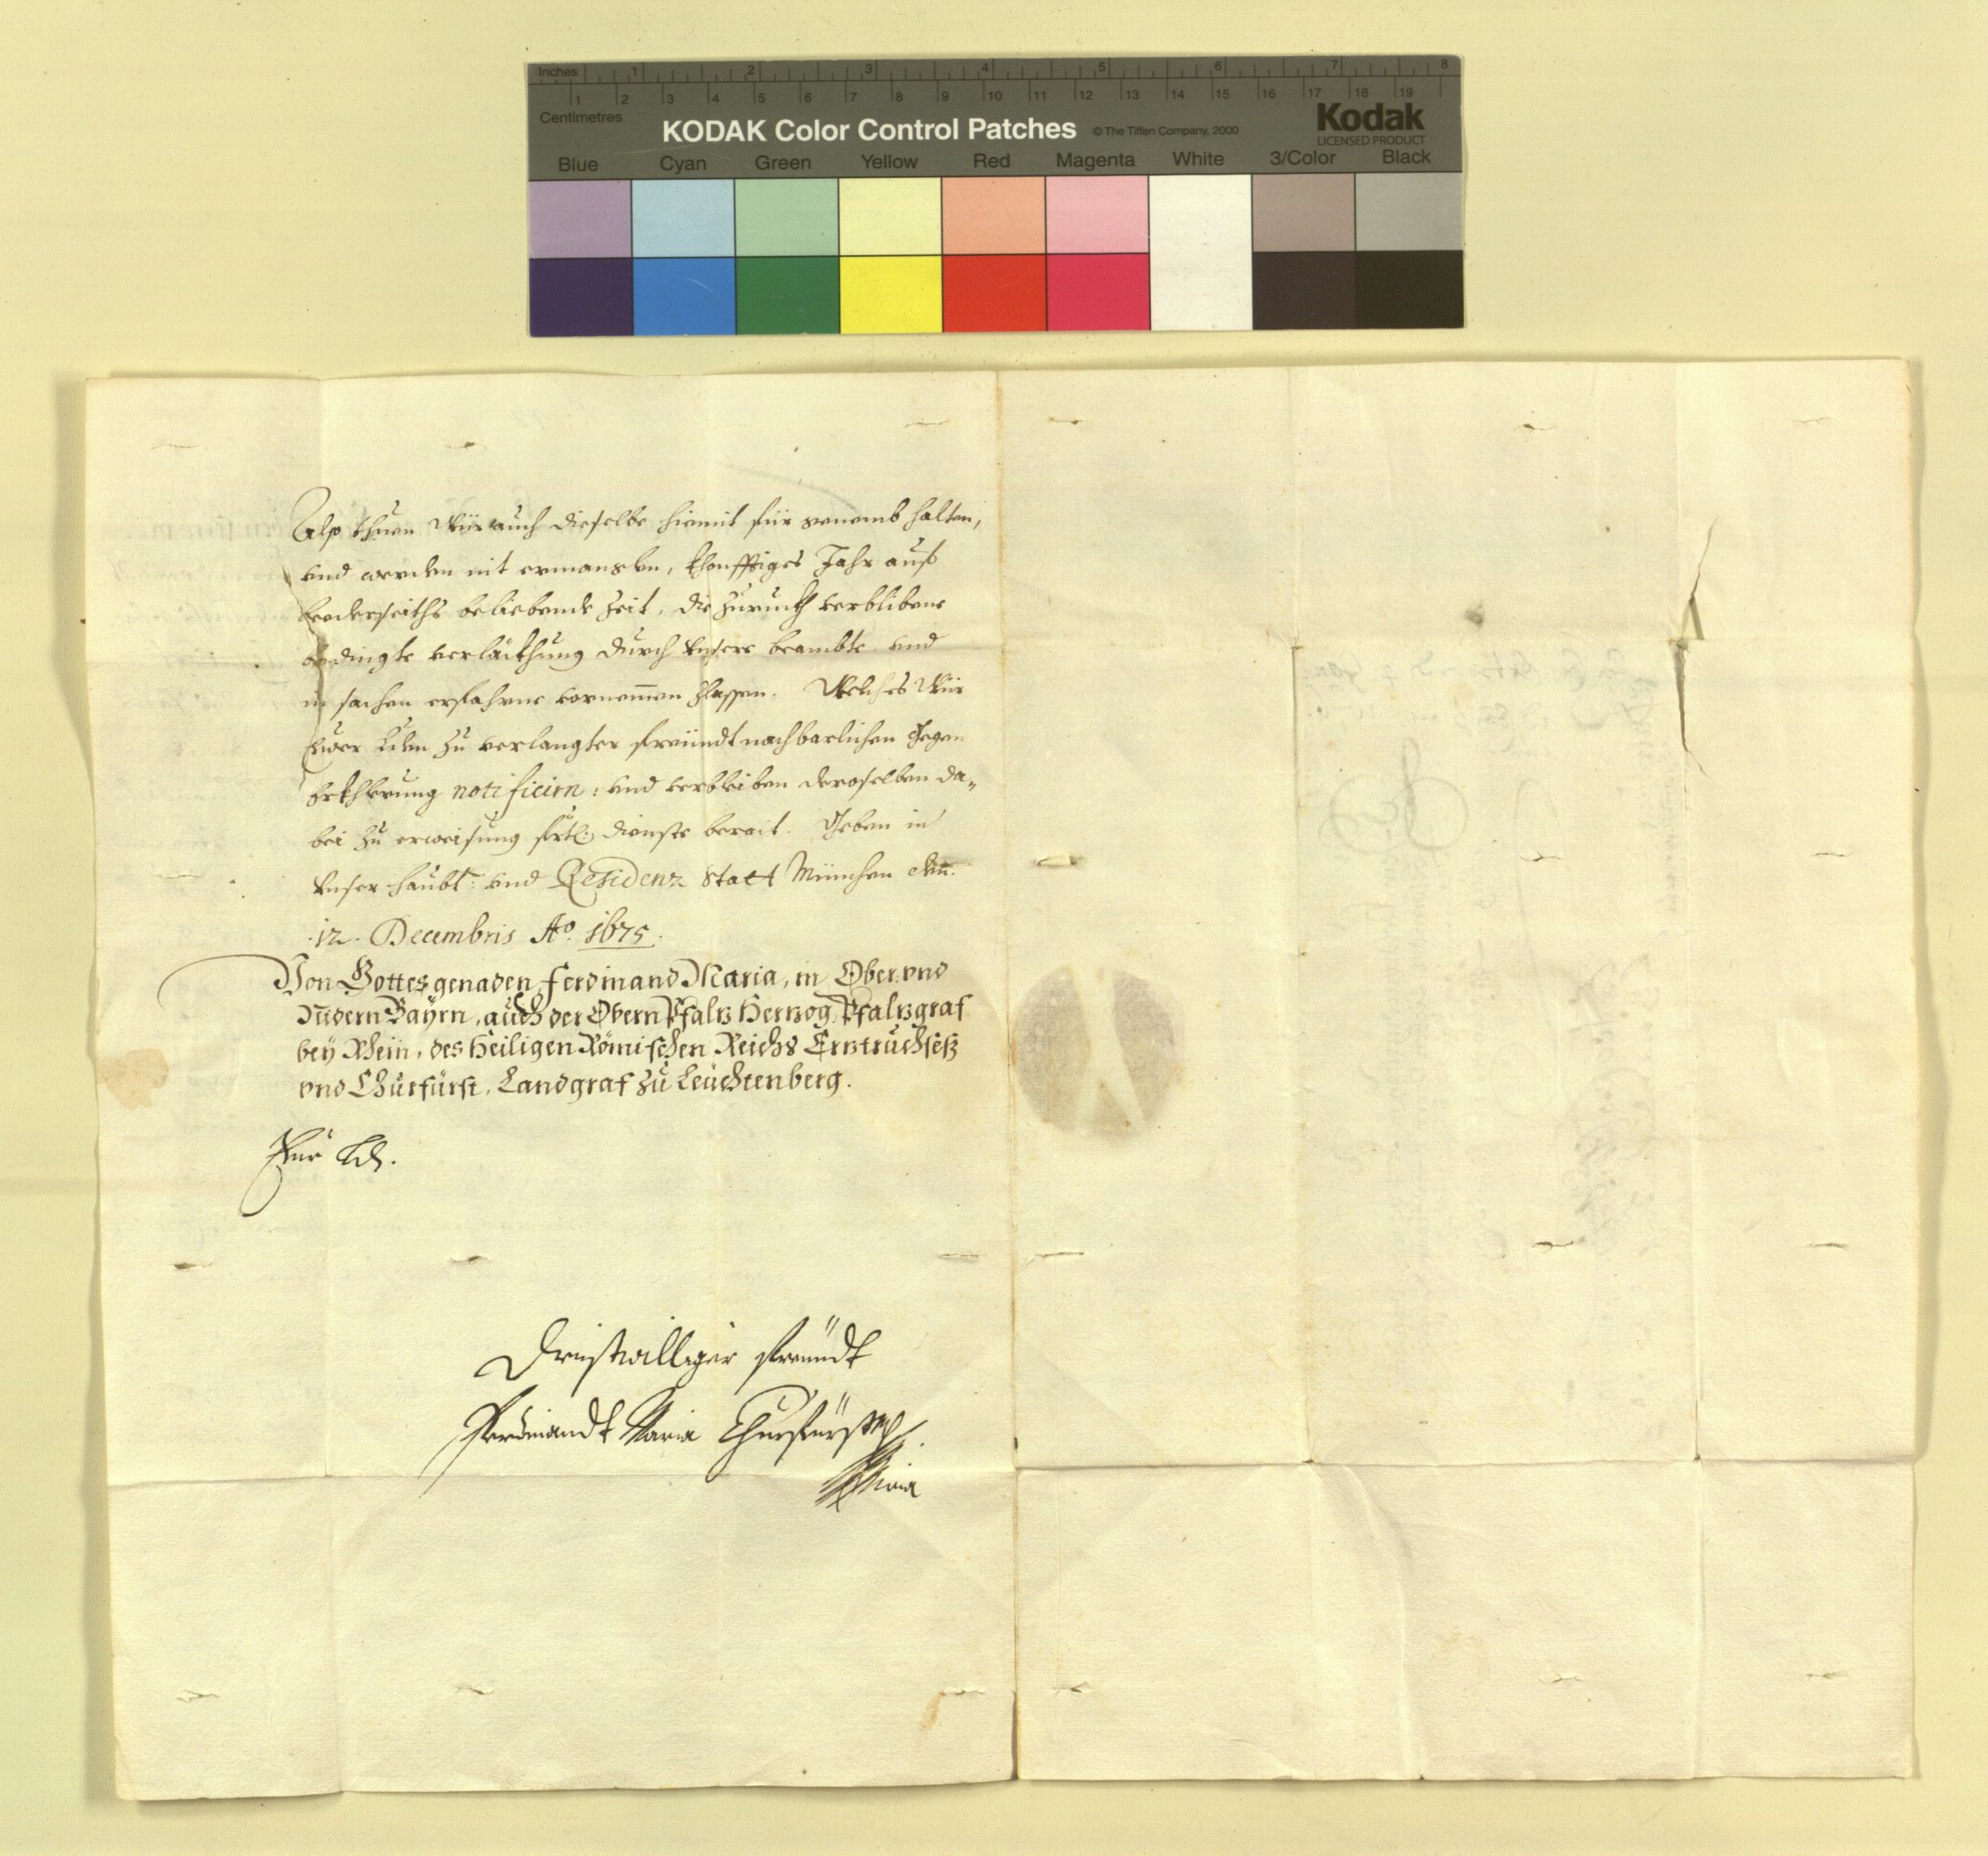 Inches 1 2 3 4 5 6 7 8
1 2 3 4 5 6 7 8 9 10 11 12 13 14 15 16 17 18 19
Centimetres
KODAK Color Control Patches © The Tiffen Company, 2000 Kodak
LICENSED PRODUCT
Blue Cyan Green Yellow Red Magenta White 3/Color Black
Alß thuen Wür auch dieselbe hiemit für genemb halten,
vnd werden nit ermanglen, khonfftiges Jahr auf
bederseiths beliebende Zeit, die zuruckh verblibene
bedingte verläithung durch vnsere beambte vnd
in sachen erfahrne vornemen zlassen. Welches Wür
Euer Lden zu verlangter freündtnachbarlichen gegen
erkhlerung notificirn: vnd verbleiben deroselben da„
bei zu erweisung frtl: dienste berait. Geben in
vnser haubt: vnd Residenz Statt München den
.12. Decembris Aº. 1675.
Von Gottes genaden, Ferdinand Maria, in Ober: vnd
Nidern Bayrn, auch der Obern Pfaltz Hertzog, Pfaltzgraf
bey Rhein, des Heiligen Römischen Reichs Ertztruchseß
vnd Churfürst, Landgraf zu Leuchtenberg.
Eur Ld.
Dienstwilliger freündt
Ferdinandt Maria Churfürst